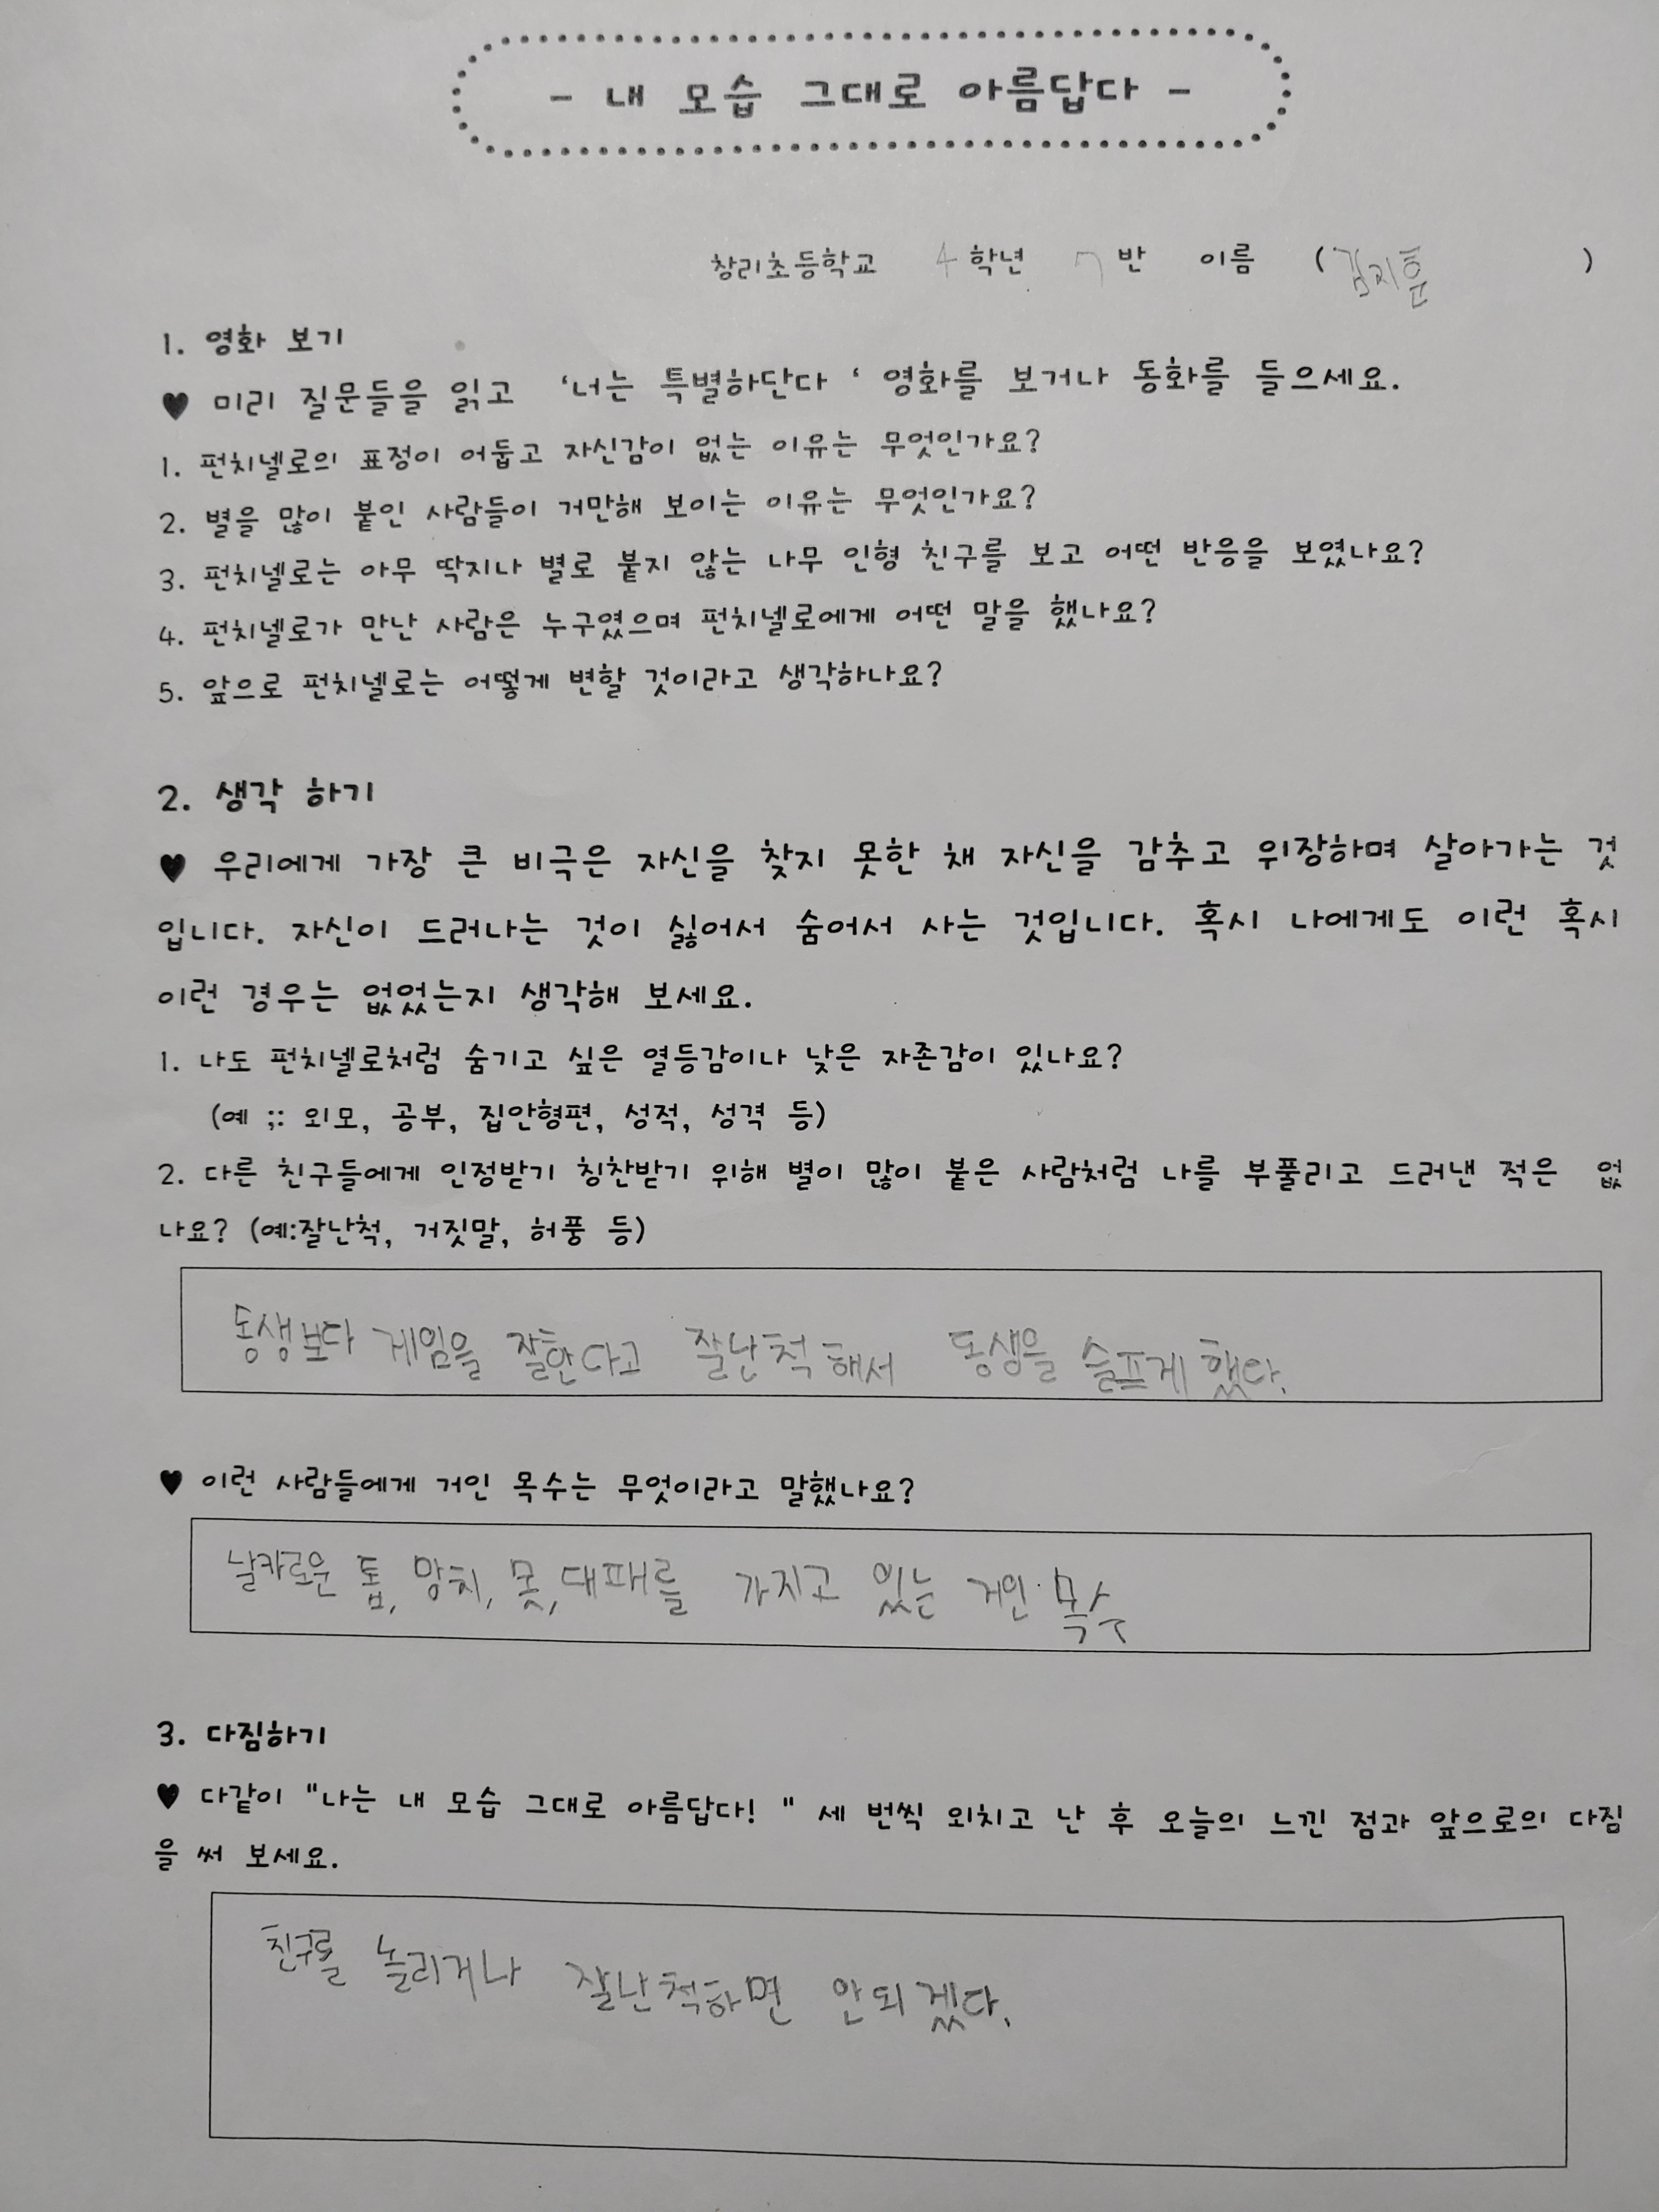 - 내 모습 그대로 아름답다 -
창리초등학교 4 학년 7 반 이름 (김지훈 )
1. 영화 보기
♥ 미리 질문들을 읽고 '너는 특별하단다 ' 영화를 보거나 동화를 들으세요.
1. 펀치넬로의 표정이 어둡고 자신감이 없는 이유는 무엇인가요?
2. 별을 많이 붙인 사람들이 거만해 보이는 이유는 무엇인가요?
3. 펀치넬로는 아무 딱지나 별로 붙지 않는 나무 인형 친구를 보고 어떤 반응을 보였나요?
4. 펀치넬로가 만난 사람은 누구였으며 펀치넬로에게 어떤 말을 했나요?
5. 앞으로 펀치넬로는 어떻게 변할 것이라고 생각하나요?
2. 생각 하기
♥ 우리에게 가장 큰 비극은 자신을 찾지 못한 채 자신을 감추고 위장하며 살아가는 것
입니다. 자신이 드러나는 것이 싫어서 숨어서 사는 것입니다. 혹시 나에게도 이런 혹시
이런 경우는 없었는지 생각해 보세요.
1. 나도 펀치넬로처럼 숨기고 싶은 열등감이나 낮은 자존감이 있나요?
(예 ;: 외모, 공부, 집안형편, 성적, 성격 등)
2. 다른 친구들에게 인정받기 칭찬받기 위해 별이 많이 붙은 사람처럼 나를 부풀리고 드러낸 적은 없
나요? (예:잘난척, 거짓말, 허풍 등)
동생보다 게임을 잘한다고 잘난척해서 동생을 슬프게 했다.
♥ 이런 사람들에게 거인 목수는 무엇이라고 말했나요?
날카로운 톱, 망치, 못, 대패를 가지고 있는 거인 목수
3. 다짐하기
♥ 다같이 "나는 내 모습 그대로 아름답다! " 세 번씩 외치고 난 후 오늘의 느낀 점과 앞으로의 다짐
을 써 보세요.
친구를 놀리거나 잘난척하면 안되겠다.